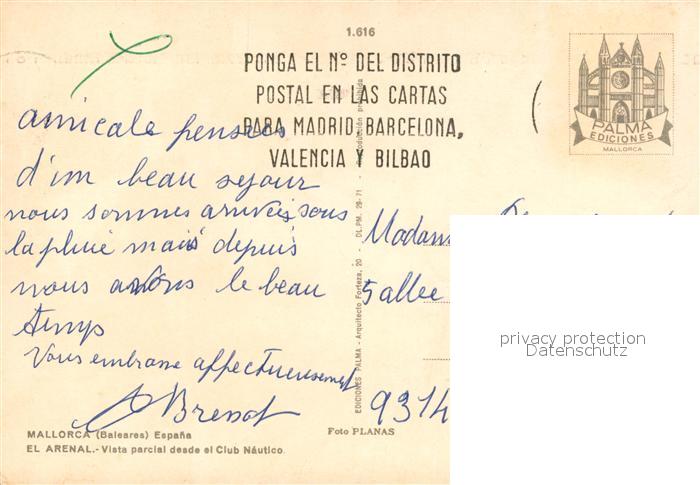 1.616
PONGA EL Nº DEL DISTRITO
POSTAL EN LAS CARTAS
PARA MADRID, BARCELONA,
VALENCIA Y BILBAO
PALMA
EDICIONES
MALLORCA
amicale pensées
d'un beau sejour
nous sommes arrivées sous
la pluie mais depuis
nous avons le beau
temps
Vous embrasse affectueusement
Bressot
Madame
5 allee
9314
EDICIONES PALMA - Arquitecto Forteza, 20 - DL.PM. 29-71 - Reproducción prohibida
privacy protection
Datenschutz
MALLORCA (Baleares) España
EL ARENAL.- Vista parcial desde el Club Náutico.
Foto PLANAS